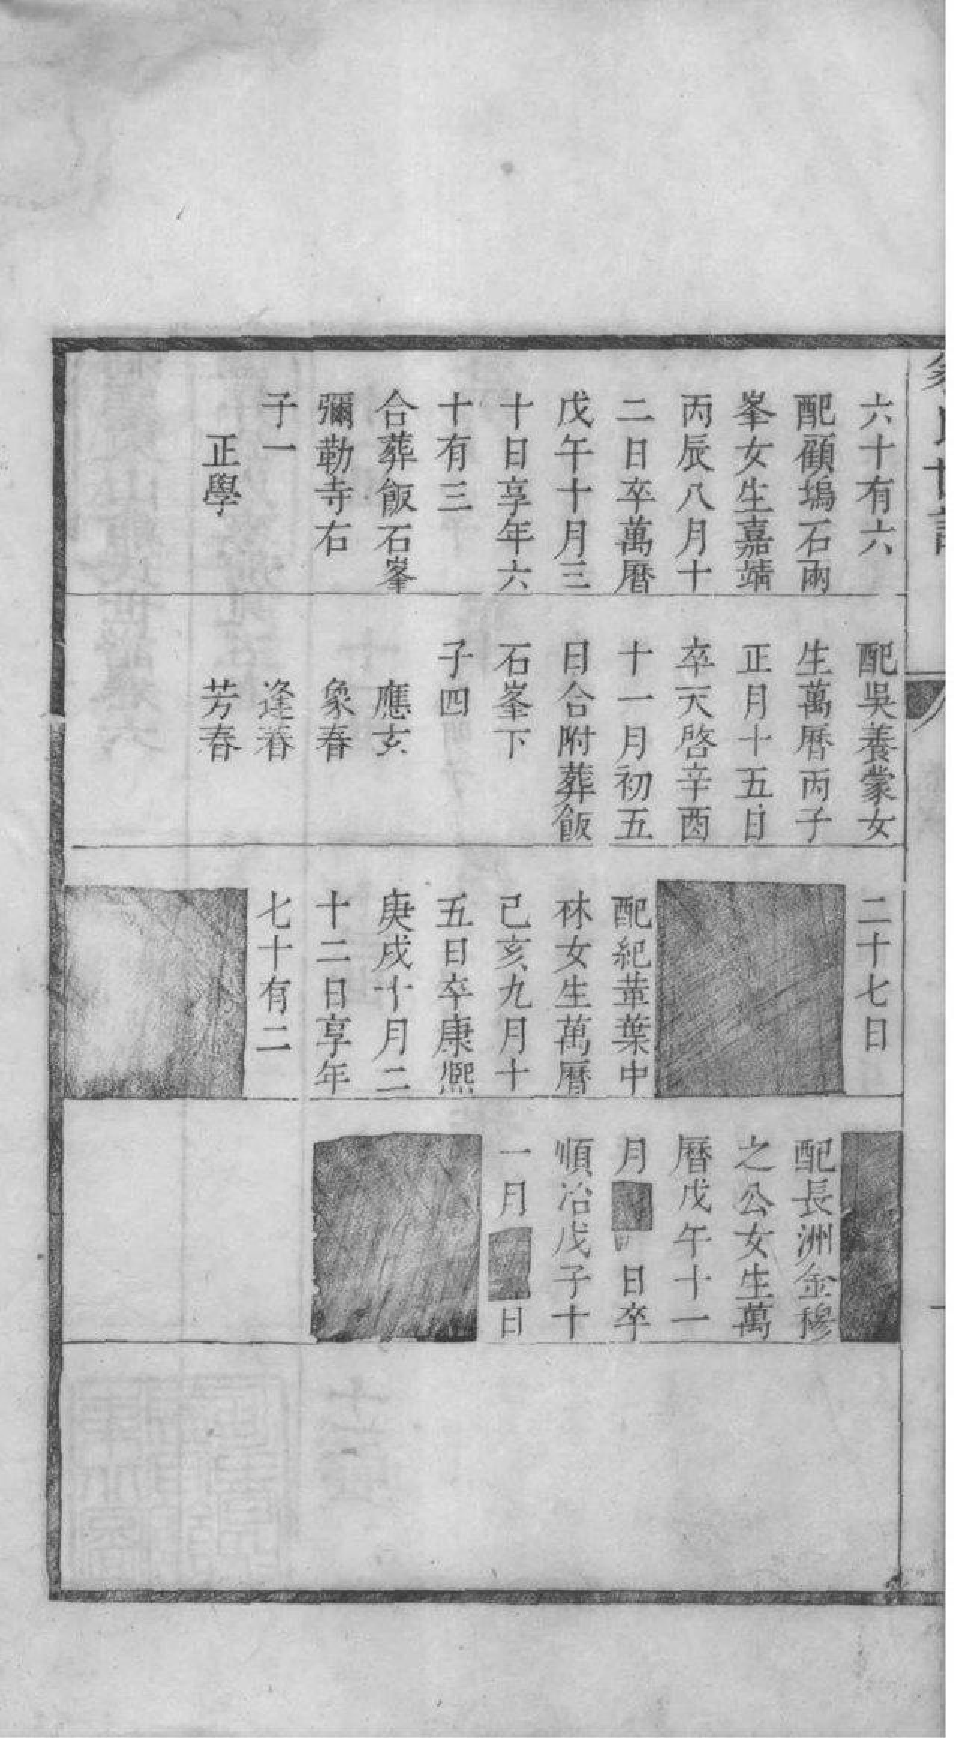 六十有六
配顧塢石兩
峯女生嘉靖
丙辰八月十
二日卒萬曆
戊午十月三
十日享年六
十有三
合葬飯石峯
彌勒寺右
子一
正學
配吳養蒙女
生萬曆丙子
正月十五日
卒天啓辛酉
十一月初五
日合附葬飯
石峯下
子四
應玄
象春
逢春
芳春
二十七日
配紀葉中
林女生萬曆
己亥九月十
五日卒康熈
庚戌十月二
十二日享年
七十有二
配長洲金穆
之公女生萬
曆戊午十一
月 日卒
順治戊子十
一月 日